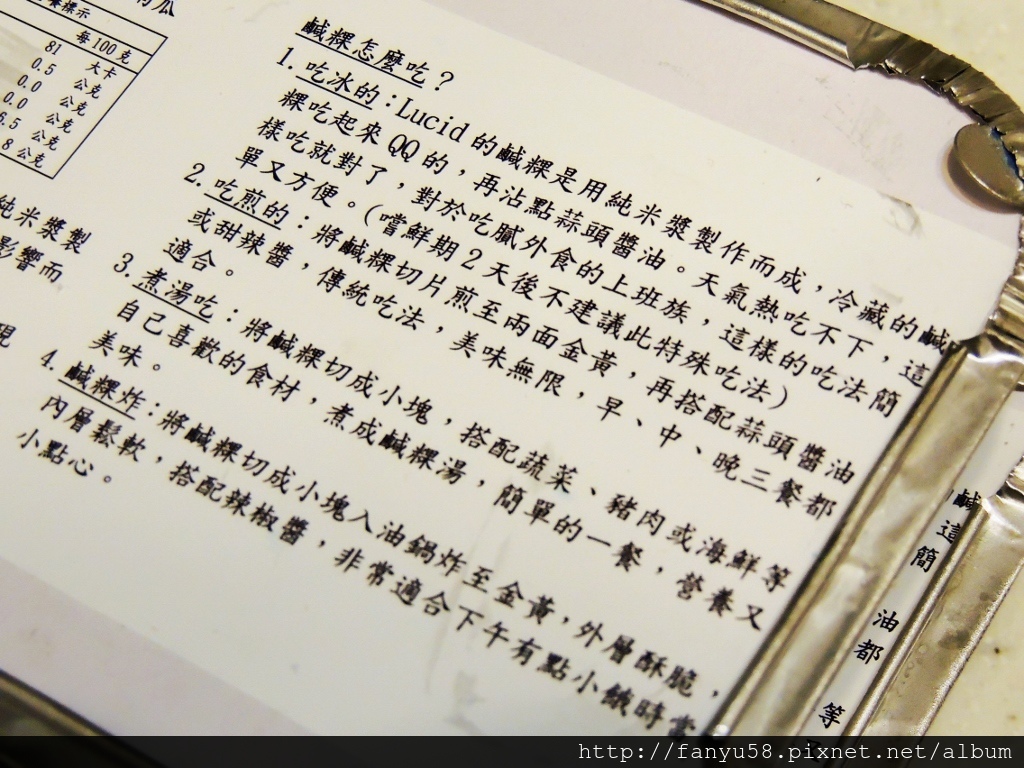 南瓜
養標示
每100克
81 大卡
0.5 公克
0.0 公克
0.0 公克
6.5 公克
8公克
純米漿製
影響而
現
鹹粿怎麼吃？
1.吃冰的：Lucid的鹹粿是用純米漿製作而成，冷藏的鹹
粿吃起來QQ的，再沾點蒜頭醬油。天氣熱吃不下，這
樣吃就對了，對於吃膩外食的上班族，這樣的吃法簡
單又方便。(嚐鮮期2天後不建議此特殊吃法)
2.吃煎的：將鹹粿切片煎至兩面金黃，再搭配蒜頭醬油
或甜辣醬，傳統吃法，美味無限，早、中、晚三餐都
適合。
3.煮湯吃：將鹹粿切成小塊，搭配蔬菜、豬肉或海鮮等
自己喜歡的食材，煮成鹹粿湯，簡單的一餐，營養又
美味。
4.鹹粿炸：將鹹粿切成小塊入油鍋炸至金黃，外層酥脆，
內層鬆軟，搭配辣椒醬，非常適合下午有點小餓時當
小點心。
鹹
這
簡
油
都
等
http://fanyu58.pixnet.net/album